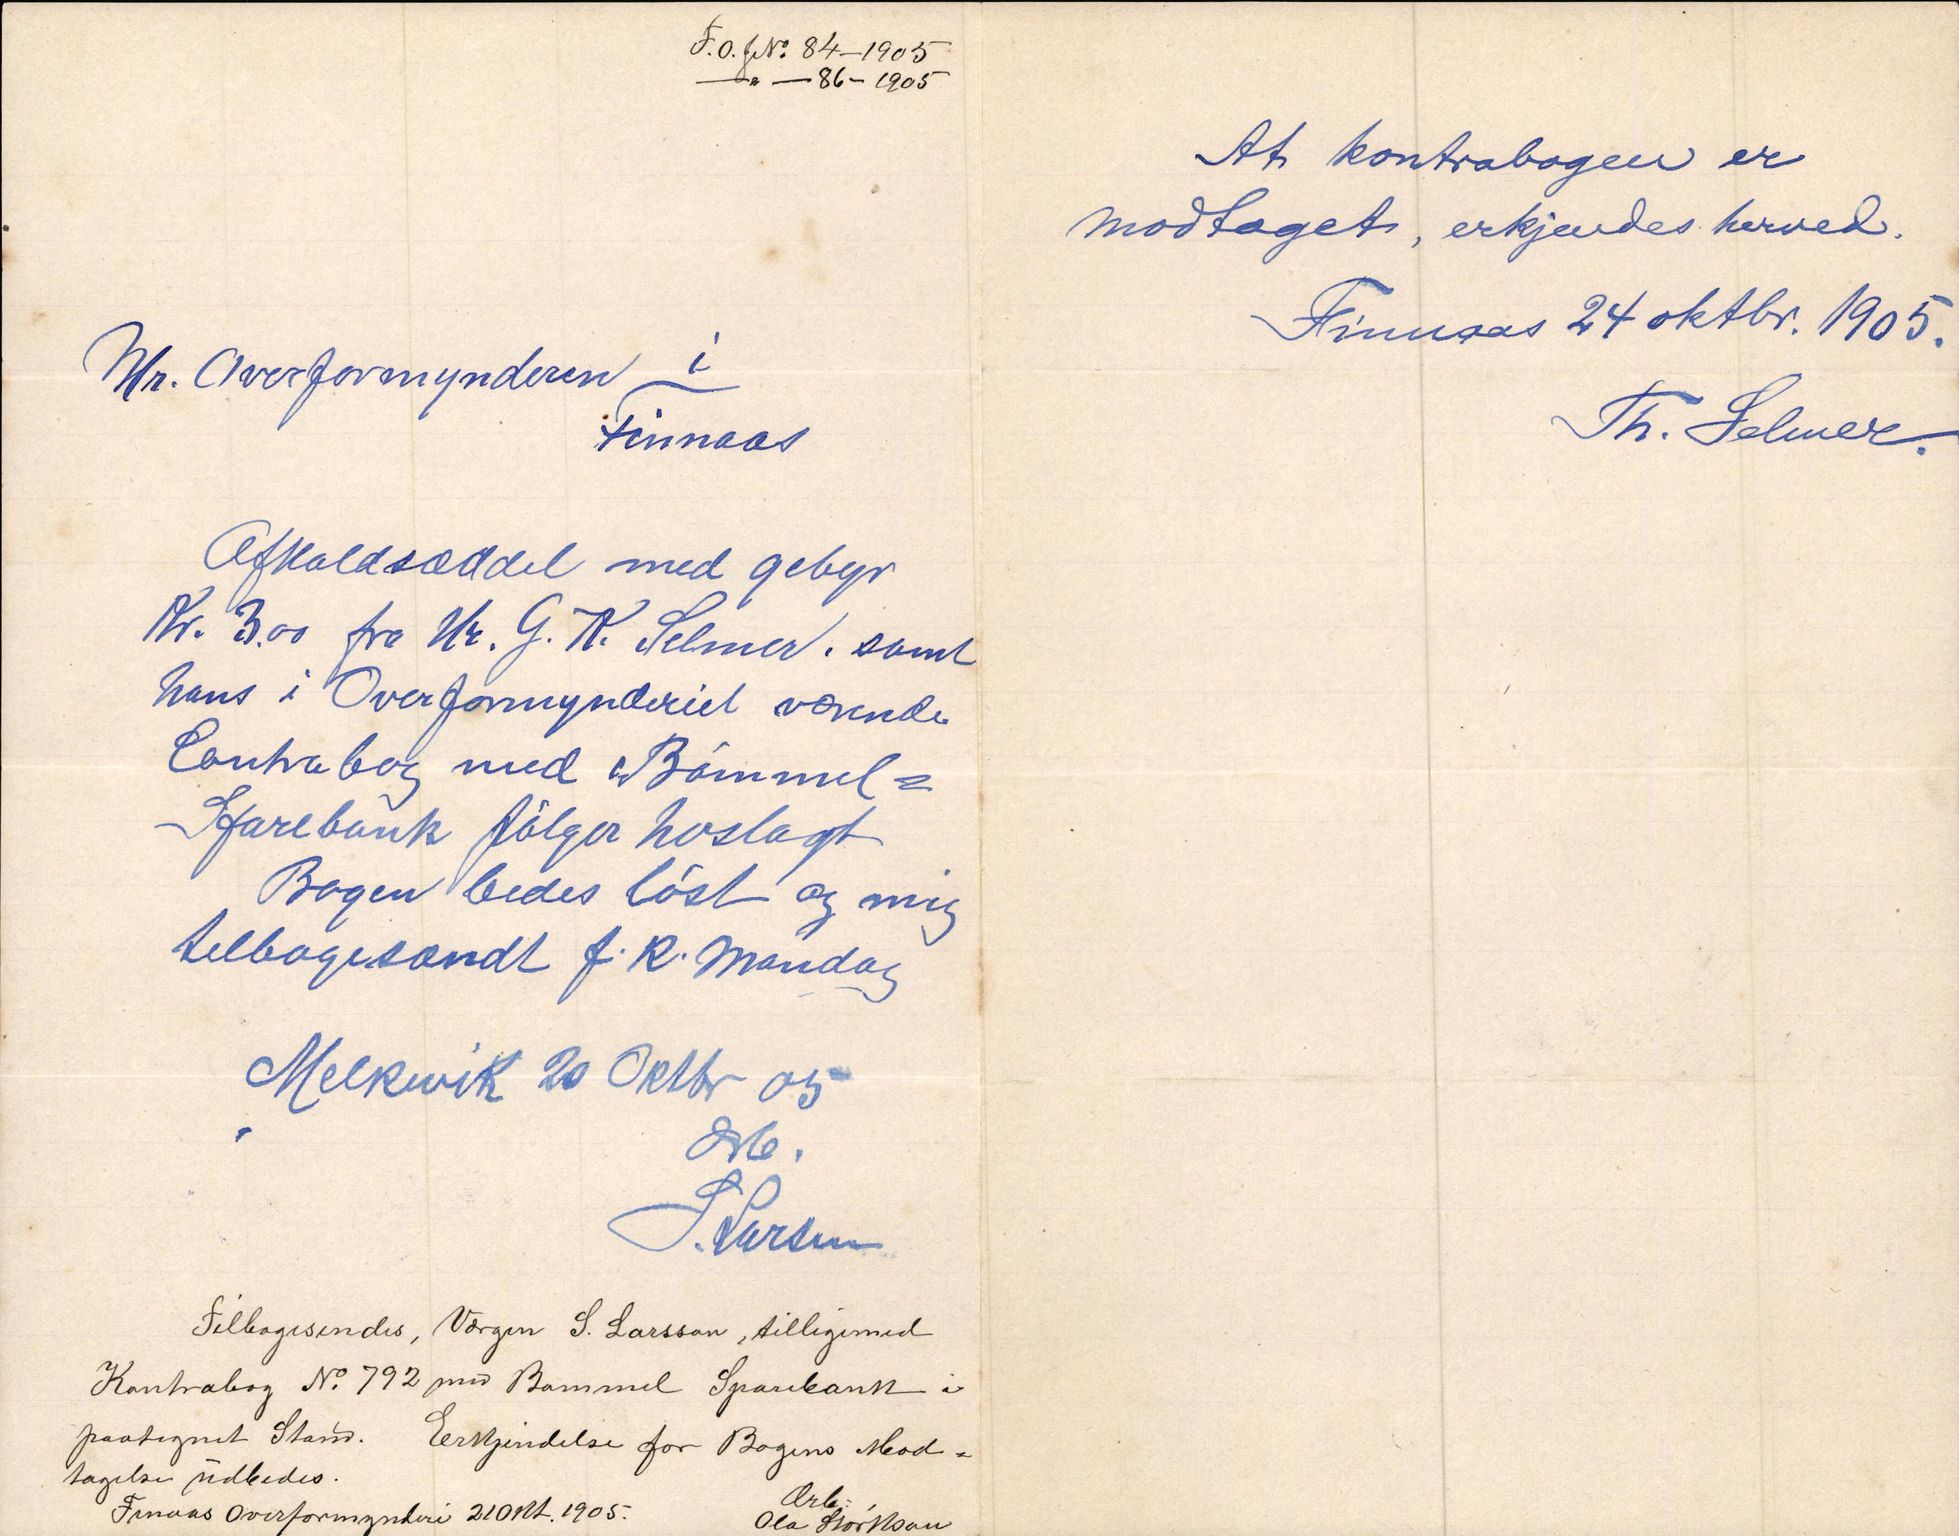 F.O. f. No. 84-1905
—"— 86- 1905
Hr. Overformynderen i
Finnaas
Afkaldsæddel med gebyr
Kr. 3.00 fra Hr. G. K. Selmer. samt
hans i Overformynderiet værende
Contrabog med Bömmel=
Sparebank fölger hoslagt
Bogen bedes löst og mig
tilbagesændt f. k. Mandag
Melkevik 20 Oktbr 05
Ærb.
S. Larsen
Tilbagesendes, Værgen S. Larsson, tilligemed
Kontrabog No. 792 med Bømmel Sparebank i
paategnet Stand. Eerkjendelse for Bogens Mod=
tagelse udbedes.
Finaas Overformynderi 21 Okt. 1905.
Ærb:
Ola
At kontrabogen er
modtaget, erkjendes herved.
Finnaas 24 oktbr. 1905.
Th. Selmer.